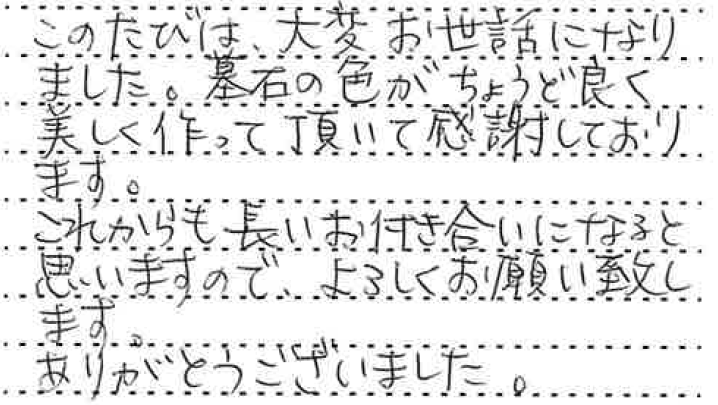 このたびは、大変お世話になり
ました。墓石の色がちょうど良く
美しく作って頂いて感謝しており
ます。
これからも長いお付き合いになると
思いますので、よろしくお願い致し
ます。
ありがとうございました。